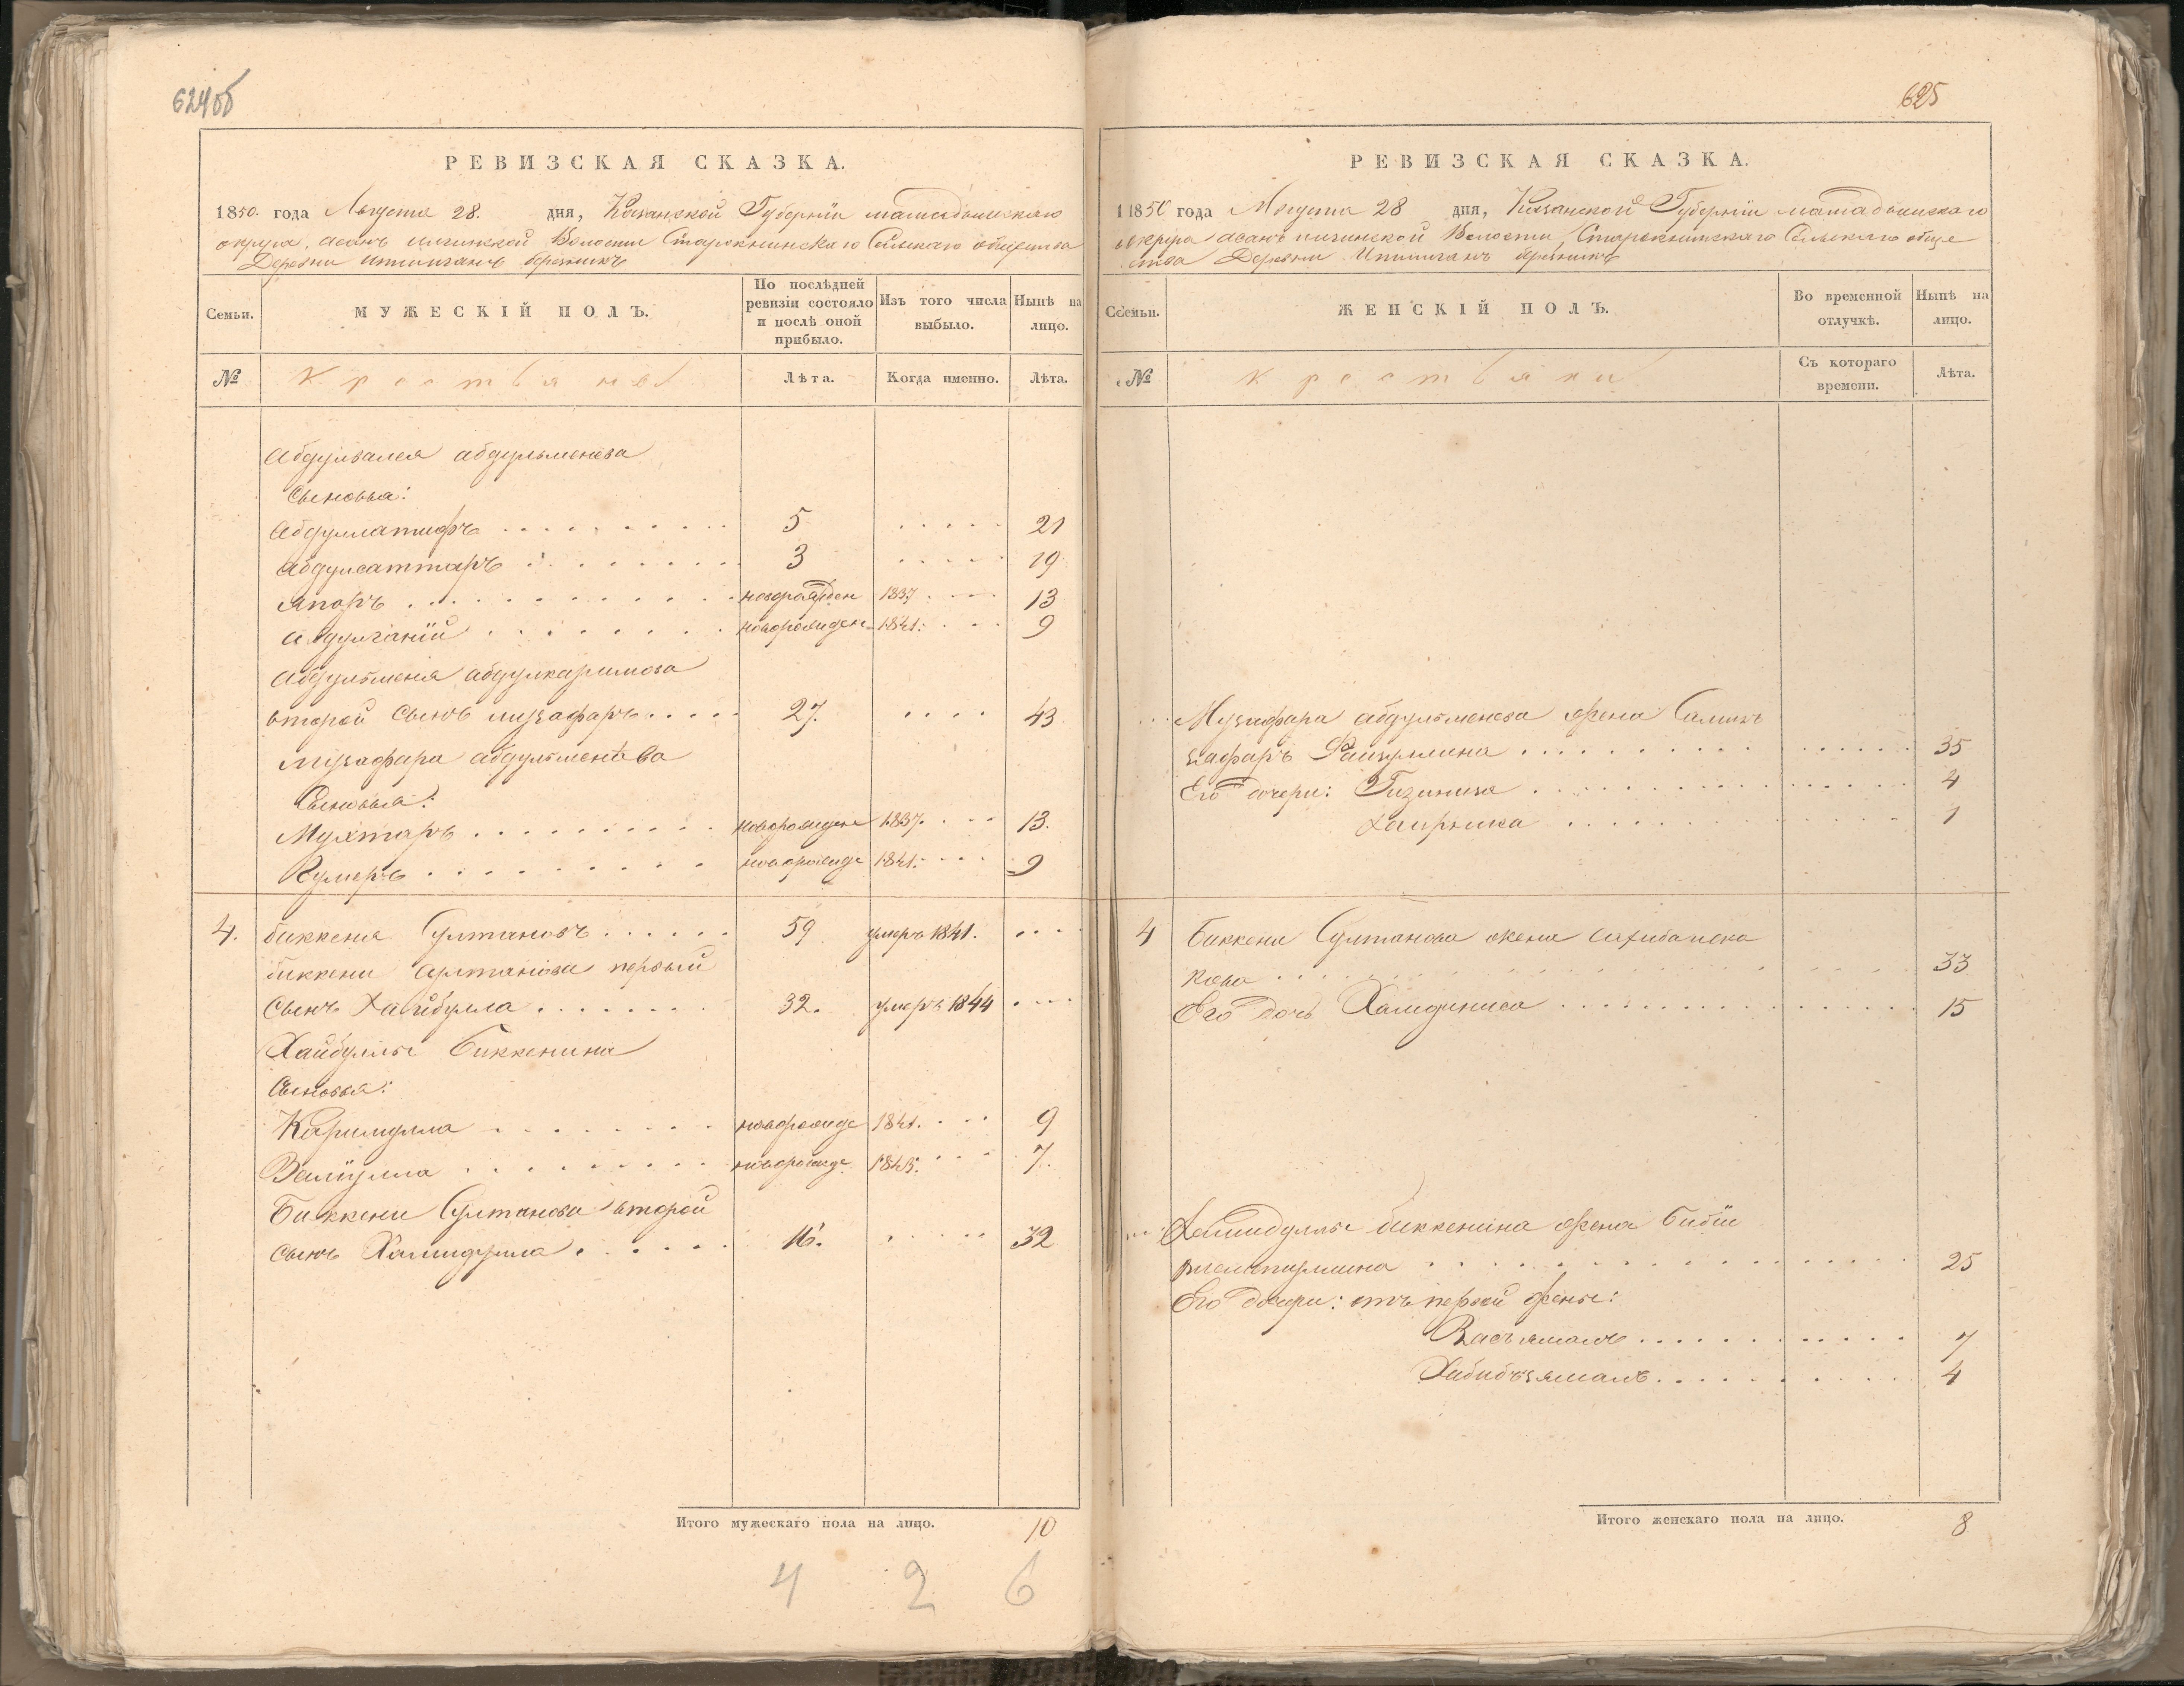 624об
РЕВИЗСКАЯ СКАЗКА.
1850. года Августа 28. дня, Казанской Губерніи мамадышскаго
округа, асанъ илгинской Волости Старокнинскаго Сельскаго общества
Деревни ишимганъ березникъ
Семьи.
МУЖЕСКІЙ ПОЛЪ.
По послѣдней ревизіи состояло и послѣ оной прибыло.
Изъ того числа выбыло.
Нынѣ на лицо.
№
крестьянъ
Лѣта.
Когда именно.
Лѣта.
абдулвалея абдульменева
Сыновья:
абдуллатифъ 5 21
абдулсаттаръ 3 19
япаръ новорожден 1837 13
абдулганій новорожден 1841. 9
абдульменя абдулкаримова
второй сынъ музафаръ 27. 43
музафара абдульменева
Сыновья:
Мухтаръ новорожден 1837. 13.
Кумеръ новорожде 1841. 9
4. биккеня Султановъ 59 умеръ 1841.
биккени султанова первый
сынъ Хайбулла 32. умеръ 1844
Хайбуллы Биккенина
Сыновья:
Каримулла новорожде 1841. 9
Валіулла новорожде 1843. 7.
Биккени Султанова второй
сынъ Хамидулла 16. 32
Итого мужескаго пола на лицо. 10
4 2 6
625
РЕВИЗСКАЯ СКАЗКА.
1850 года Августа 28 дня, Казанской Губерніи мамадышскаго
округа асанъ илгинской Волости, Старокнинскаго Сельскаго обще
ства Деревни Ишимганъ березникъ
Семьи.
ЖЕНСКІЙ ПОЛЪ.
Во временной отлучкѣ.
Нынѣ на лицо.
№
крестьяни
Съ котораго времени.
Лѣта.
Музафара абдульменева жена Салихъ
зафаръ Файзулина 35
Его дочери: Гизиниса 4
Хаирниса 1
4 Биккени Султанова жена сахибаиска
кова 33
Его дочь Хамдиниса 15
Хамидуллы биккенина жена Бибіи
25
Его дочери: отъ первой жены:
7
Хабибъзямалъ 4
Итого женскаго пола на лицо. 8